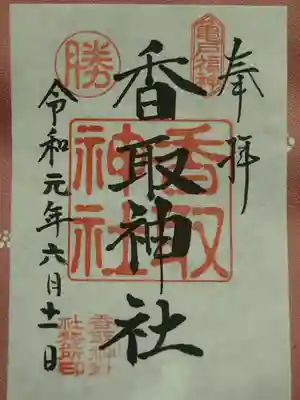 奉拝
亀戸福神
香取神社
香取
神社
勝
令和元年六月十一日
香取神社
社務所印